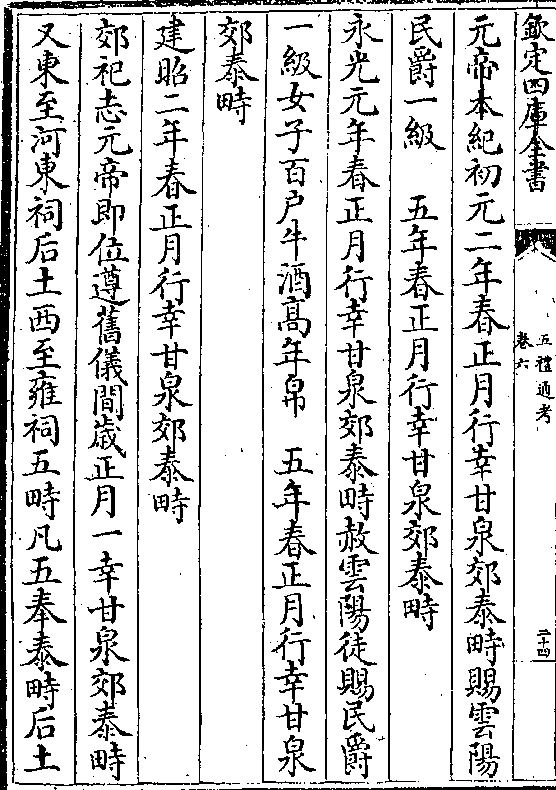 欽定四庫全書
五禮通考
卷六
二十四
元帝本紀初元二年春正月行幸甘泉郊泰畤賜雲陽
民爵一級　五年春正月行幸甘泉郊泰畤
永光元年春正月行幸甘泉郊泰畤赦雲陽徒賜民爵
一級女子百户牛酒髙年帛　五年春正月行幸甘泉
郊泰畤
建昭二年春正月行幸甘泉郊泰畤
郊祀志元帝即位遵舊儀間歳正月一幸甘泉郊泰畤
又東至河東祠后土西至雍祠五畤凡五奉泰畤后土